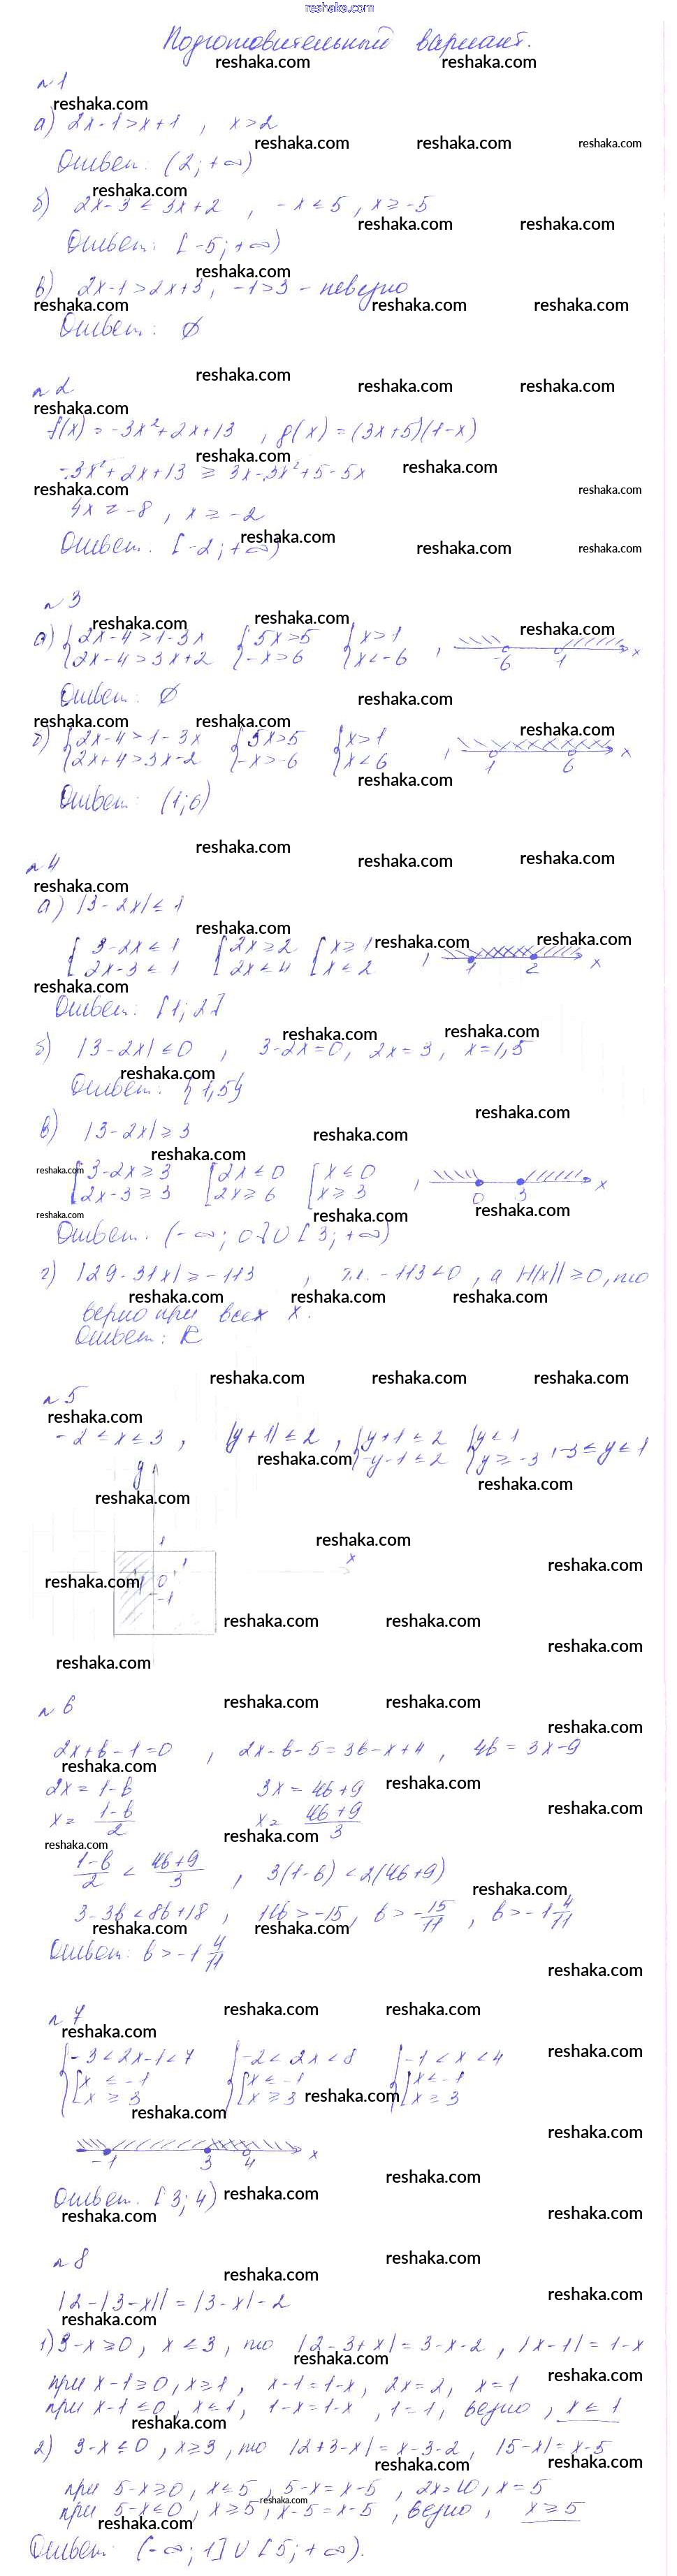 reshaka.com
Подготовительный вариант.
№1
а) 2x-1>x+1 , x>2
Ответ: (2;+∞)
б) 2x-3≤3x+2 , -x≤5 , x≥-5
Ответ: [-5;+∞)
в) 2x-1>2x+3, -1>3 - неверно
Ответ: ∅
№2
f(x)=-3x²+2x+13 , g(x)=(3x+5)(1-x)
-3x²+2x+13 ≥ 3x-3x²+5-5x
4x≥-8 , x≥-2
Ответ: [-2;+∞)
№3
а) {2x-4>1-3x {5x>5 {x>1
{2x-4>3x+2 {-x>6 {x<-6 , -6 1 x
Ответ: ∅
б) {2x-4>1-3x {5x>5 {x>1
{2x+4>3x-2 {-x>-6 {x<6 , 1 6 x
Ответ: (1;6)
№4
а) |3-2x|≤1
{3-2x≤1 {2x≥2 {x≥1
{2x-3≤1 {2x≤4 {x≤2 , 1 2 x
Ответ: [1;2]
б) |3-2x|≤0 , 3-2x=0, 2x=3, x=1,5
Ответ: {1,5}
в) |3-2x|≥3
[3-2x≥3 [2x≤0 [x≤0
[2x-3≥3 [2x≥6 [x≥3 , 0 3 x
Ответ: (-∞;0]∪[3;+∞)
г) |29-31x|≥-113 , т.к. -113<0, а |f(x)|≥0, то
верно при всех x.
Ответ: R
№5
-2≤x≤3, |y+1|≤2, {y+1≤2 {y≤1
{-y-1≤2 {y≥-3 , -3≤y≤1
y
1
x
1
-1 0
-1
№6
2x+b-1=0 , 2x-b-5=3b-x+4 , 4b=3x-9
2x=1-b 3x=4b+9
x=(1-b)/2 x=(4b+9)/3
(1-b)/2 < (4b+9)/3 , 3(1-b)<2(4b+9)
3-3b<8b+18 , 11b>-15, b>-15/11 , b>-1 4/11
Ответ: b>-1 4/11
№7
{-3<2x-1<7 {-2<2x<8 {-1<x<4
{[x≤-1 {[x≤-1 {[x≤-1
[x≥3 [x≥3 [x≥3
-1 3 4 x
Ответ. [3;4)
№8
|2-|3-x||=|3-x|-2
1) 3-x≥0, x≤3, то |2-3+x|=3-x-2, |x-1|=1-x
при x-1≥0, x≥1, x-1=1-x, 2x=2, x=1
при x-1≤0, x≤1, 1-x=1-x, 1=1, верно, x≤1
2) 3-x≤0, x≥3, то |2+3-x|=x-3-2, |5-x|=x-5
при 5-x≥0, x≤5, 5-x=x-5, 2x=10, x=5
при 5-x≤0, x≥5, x-5=x-5, верно, x≥5
Ответ: (-∞;1]∪[5;+∞).